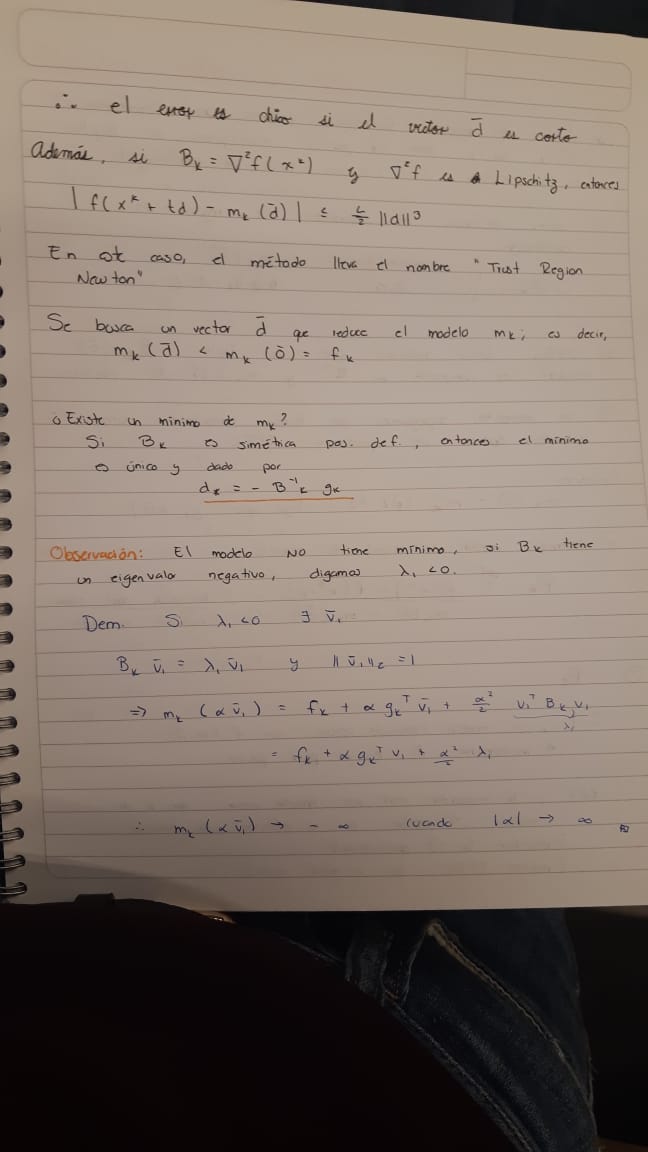 ∴ el error es chico si el vector d̄ es corto
Además, si B_k = ∇²f(x^k) y ∇²f es Lipschitz, entonces
| f(x^k + td) - m_k(d̄) | ≤ L/2 ||d||³
En ot caso, el método lleva el nombre "Trust Region
Newton"
Se busca un vector d̄ que reduce el modelo m_k; es decir,
m_k(d̄) < m_k(ō) = f_k
¿Existe un mínimo de m_k?
Si B_k es simética pos. def., entonces el mínimo
es único y dado por
d_k = - B⁻¹_k g_k
Observación: El modelo NO tiene mínimo, si B_k tiene
un eigenvalor negativo, digamos λ₁ < 0.
Dem. Si λ₁ < 0 ∃ v̄₁
B_k v̄₁ = λ₁ v̄₁ y || v̄₁ ||₂ = 1
⇒ m_k (α v̄₁) = f_k + α g_k^T v̄₁ + α²/2 v₁^T B_k v₁
λ₁
= f_k + α g_k^T v₁ + α²/2 λ₁
∴ m_k (α v̄₁) → - ∞ cuando |α| → ∞